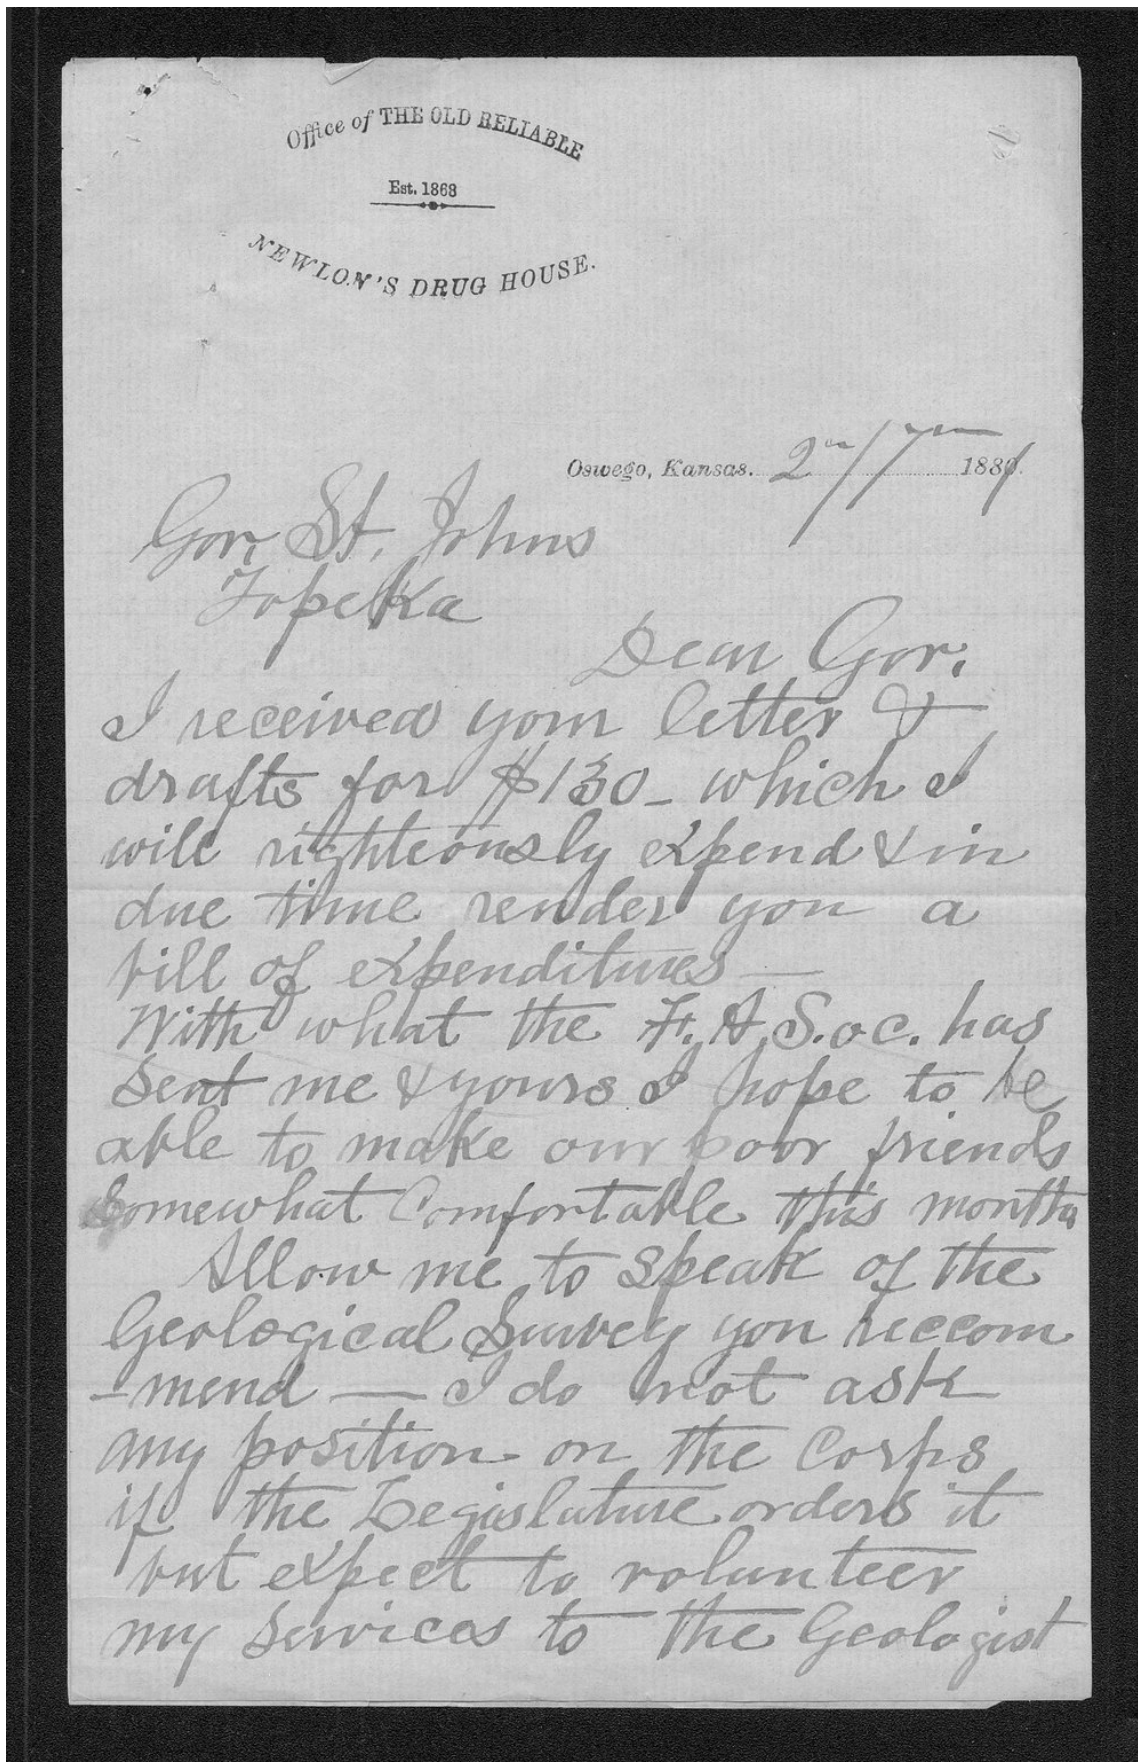 Office of THE OLD RELIABLE
Est. 1868
NEWLON'S DRUG HOUSE.
Oswego, Kansas. 2nd/7th 1881
Gov. St. Johns
Topeka
Dear Gov.
I received your letter &
drafts for $130 - which I
will righteously expend & in
due time render you a
bill of expenditures —
With what the F. A. Soc. has
sent me & yours I hope to be
able to make our poor friends
somewhat comfortable this month
Allow me to speak of the
Geological Survey you reccom
-mend — I do not ask
any position on the Corps
if the Legislature orders it
but expect to volunteer
my services to the Geologist